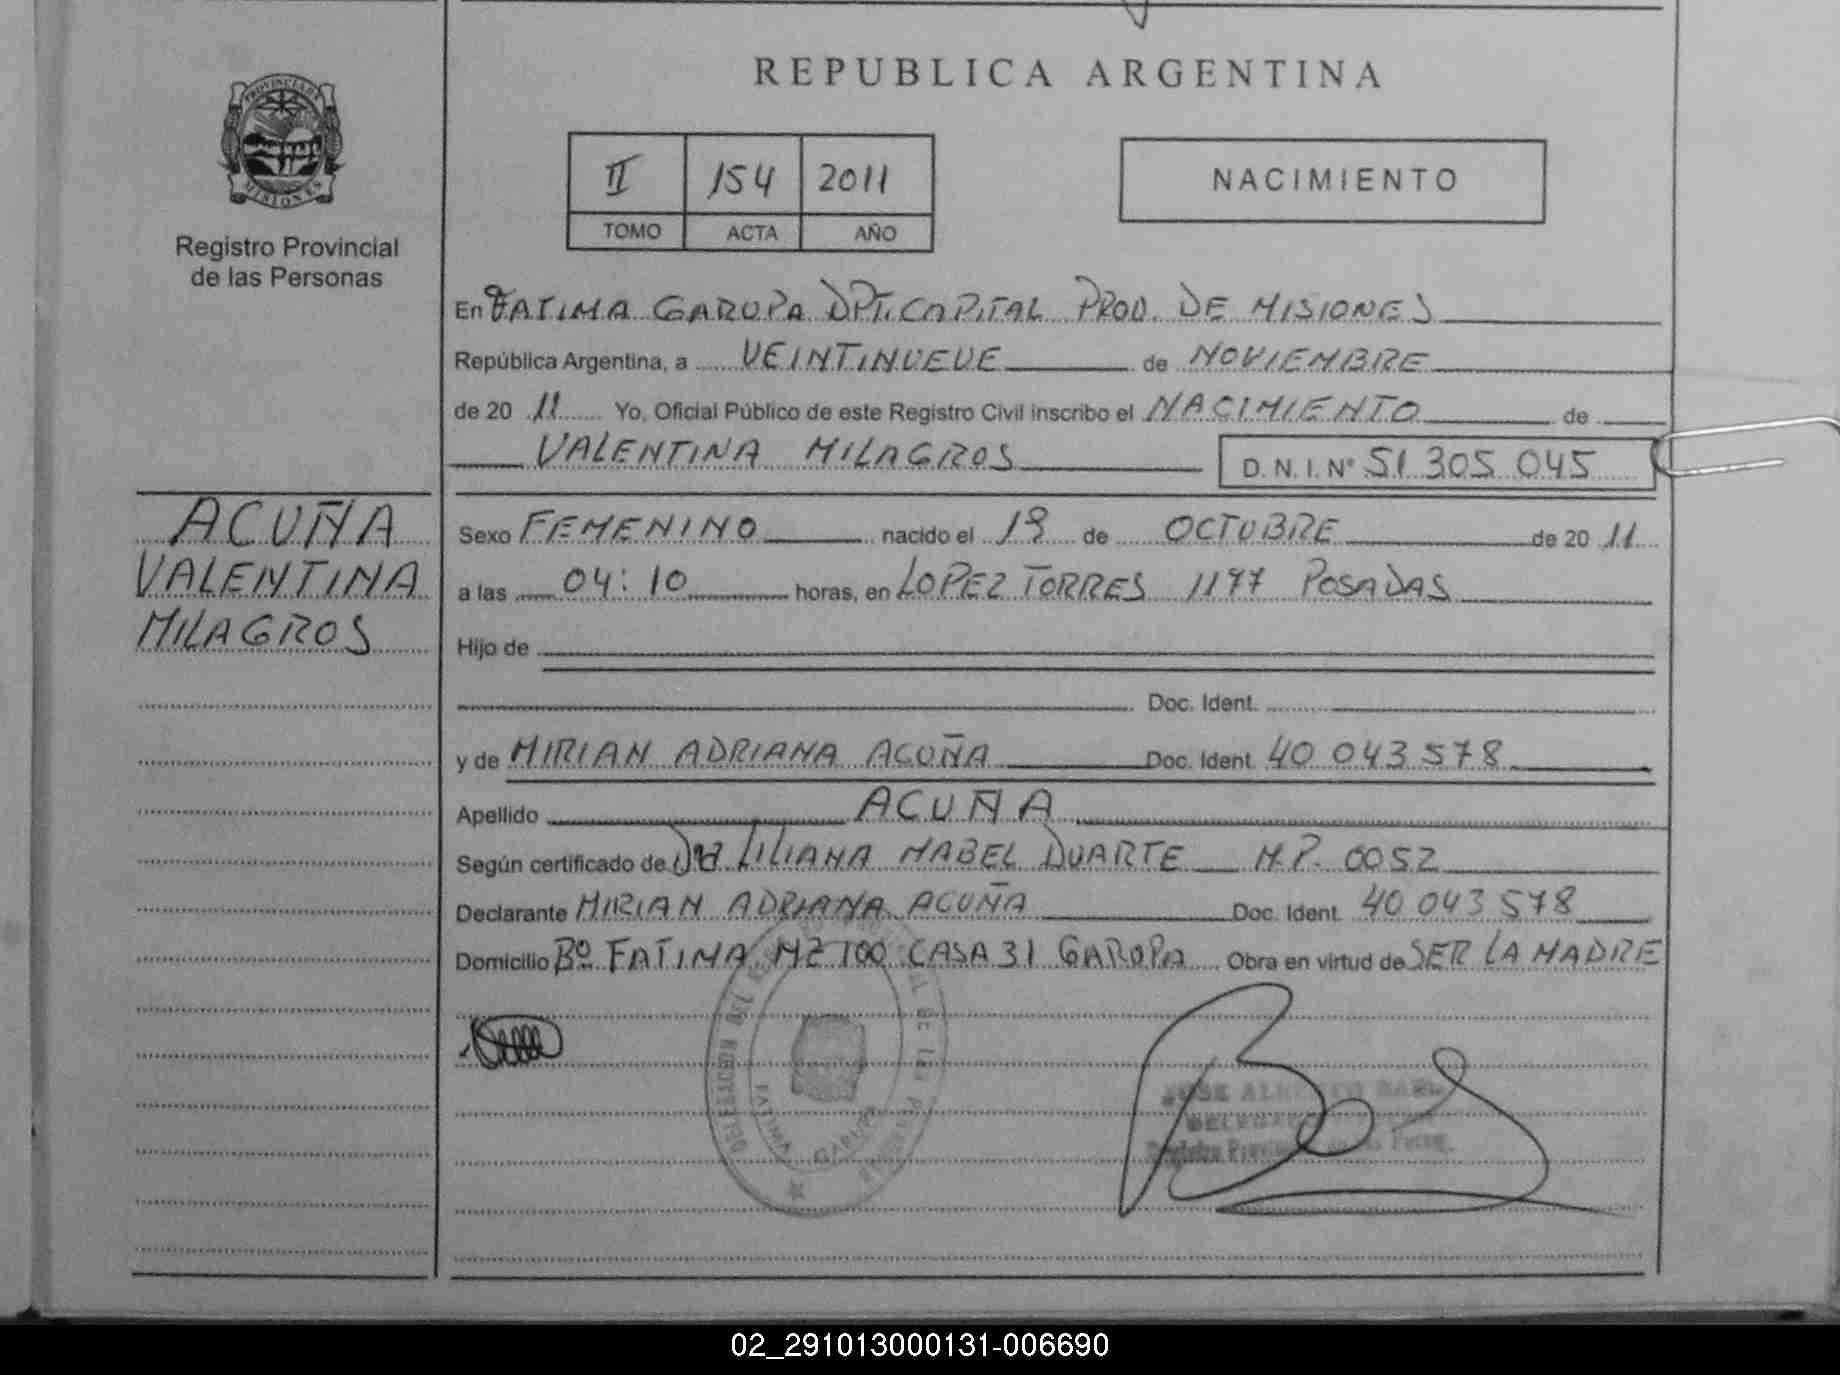 REPUBLICA ARGENTINA
PROVINCIA DE
MISIONES
Registro Provincial
de las Personas
II 154 2011
TOMO ACTA AÑO
NACIMIENTO
En FATIMA GARUPA DPT. CAPITAL PROV. DE MISIONES
República Argentina, a VEINTINUEVE de NOVIEMBRE
de 20 11 Yo, Oficial Público de este Registro Civil inscribo el NACIMIENTO de
VALENTINA MILAGROS D.N.I.N° 51 305 045
ACUÑA
VALENTINA
MILAGROS
Sexo FEMENINO nacido el 19 de OCTUBRE de 20 11
a las 04:10 horas, en LOPEZ TORRES 1177 POSADAS
Hijo de
Doc. Ident.
y de MIRIAN ADRIANA ACUÑA Doc. Ident. 40 043 578
Apellido ACUÑA
Según certificado de Dra LILIANA MABEL DUARTE M.P. 0052
Declarante MIRIAN ADRIANA ACUÑA Doc. Ident. 40 043 578
Domicilio Bº FATIMA MZ 100 CASA 31 GARUPA Obra en virtud de SER LA MADRE
FATIMA GARUPA
JOSE
02_291013000131-006690